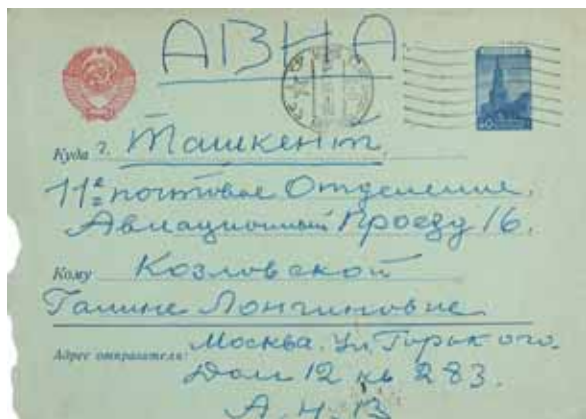 АВИА
Куда г. Ташкент
11е почтовое Отделение.
Авиационный Проезд 16.
Кому Козловской
Галине Лонгиновне
Адрес отправителя: Москва. Ул. Горького.
Дом 12 кв 283.
А. Н. В